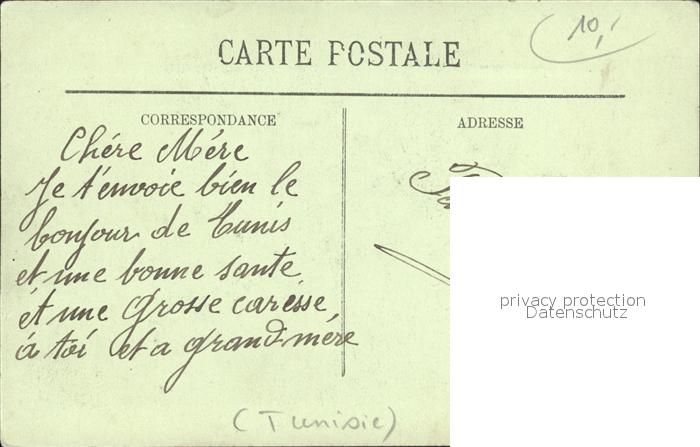 10,
CARTE POSTALE
CORRESPONDANCE
ADRESSE
Chére Mére
Je t'envoie bien le
bonjour de Tunis
et une bonne sante
et une Grosse caresse
á toi et a grand mére
privacy protection
Datenschutz
(Tunisie)